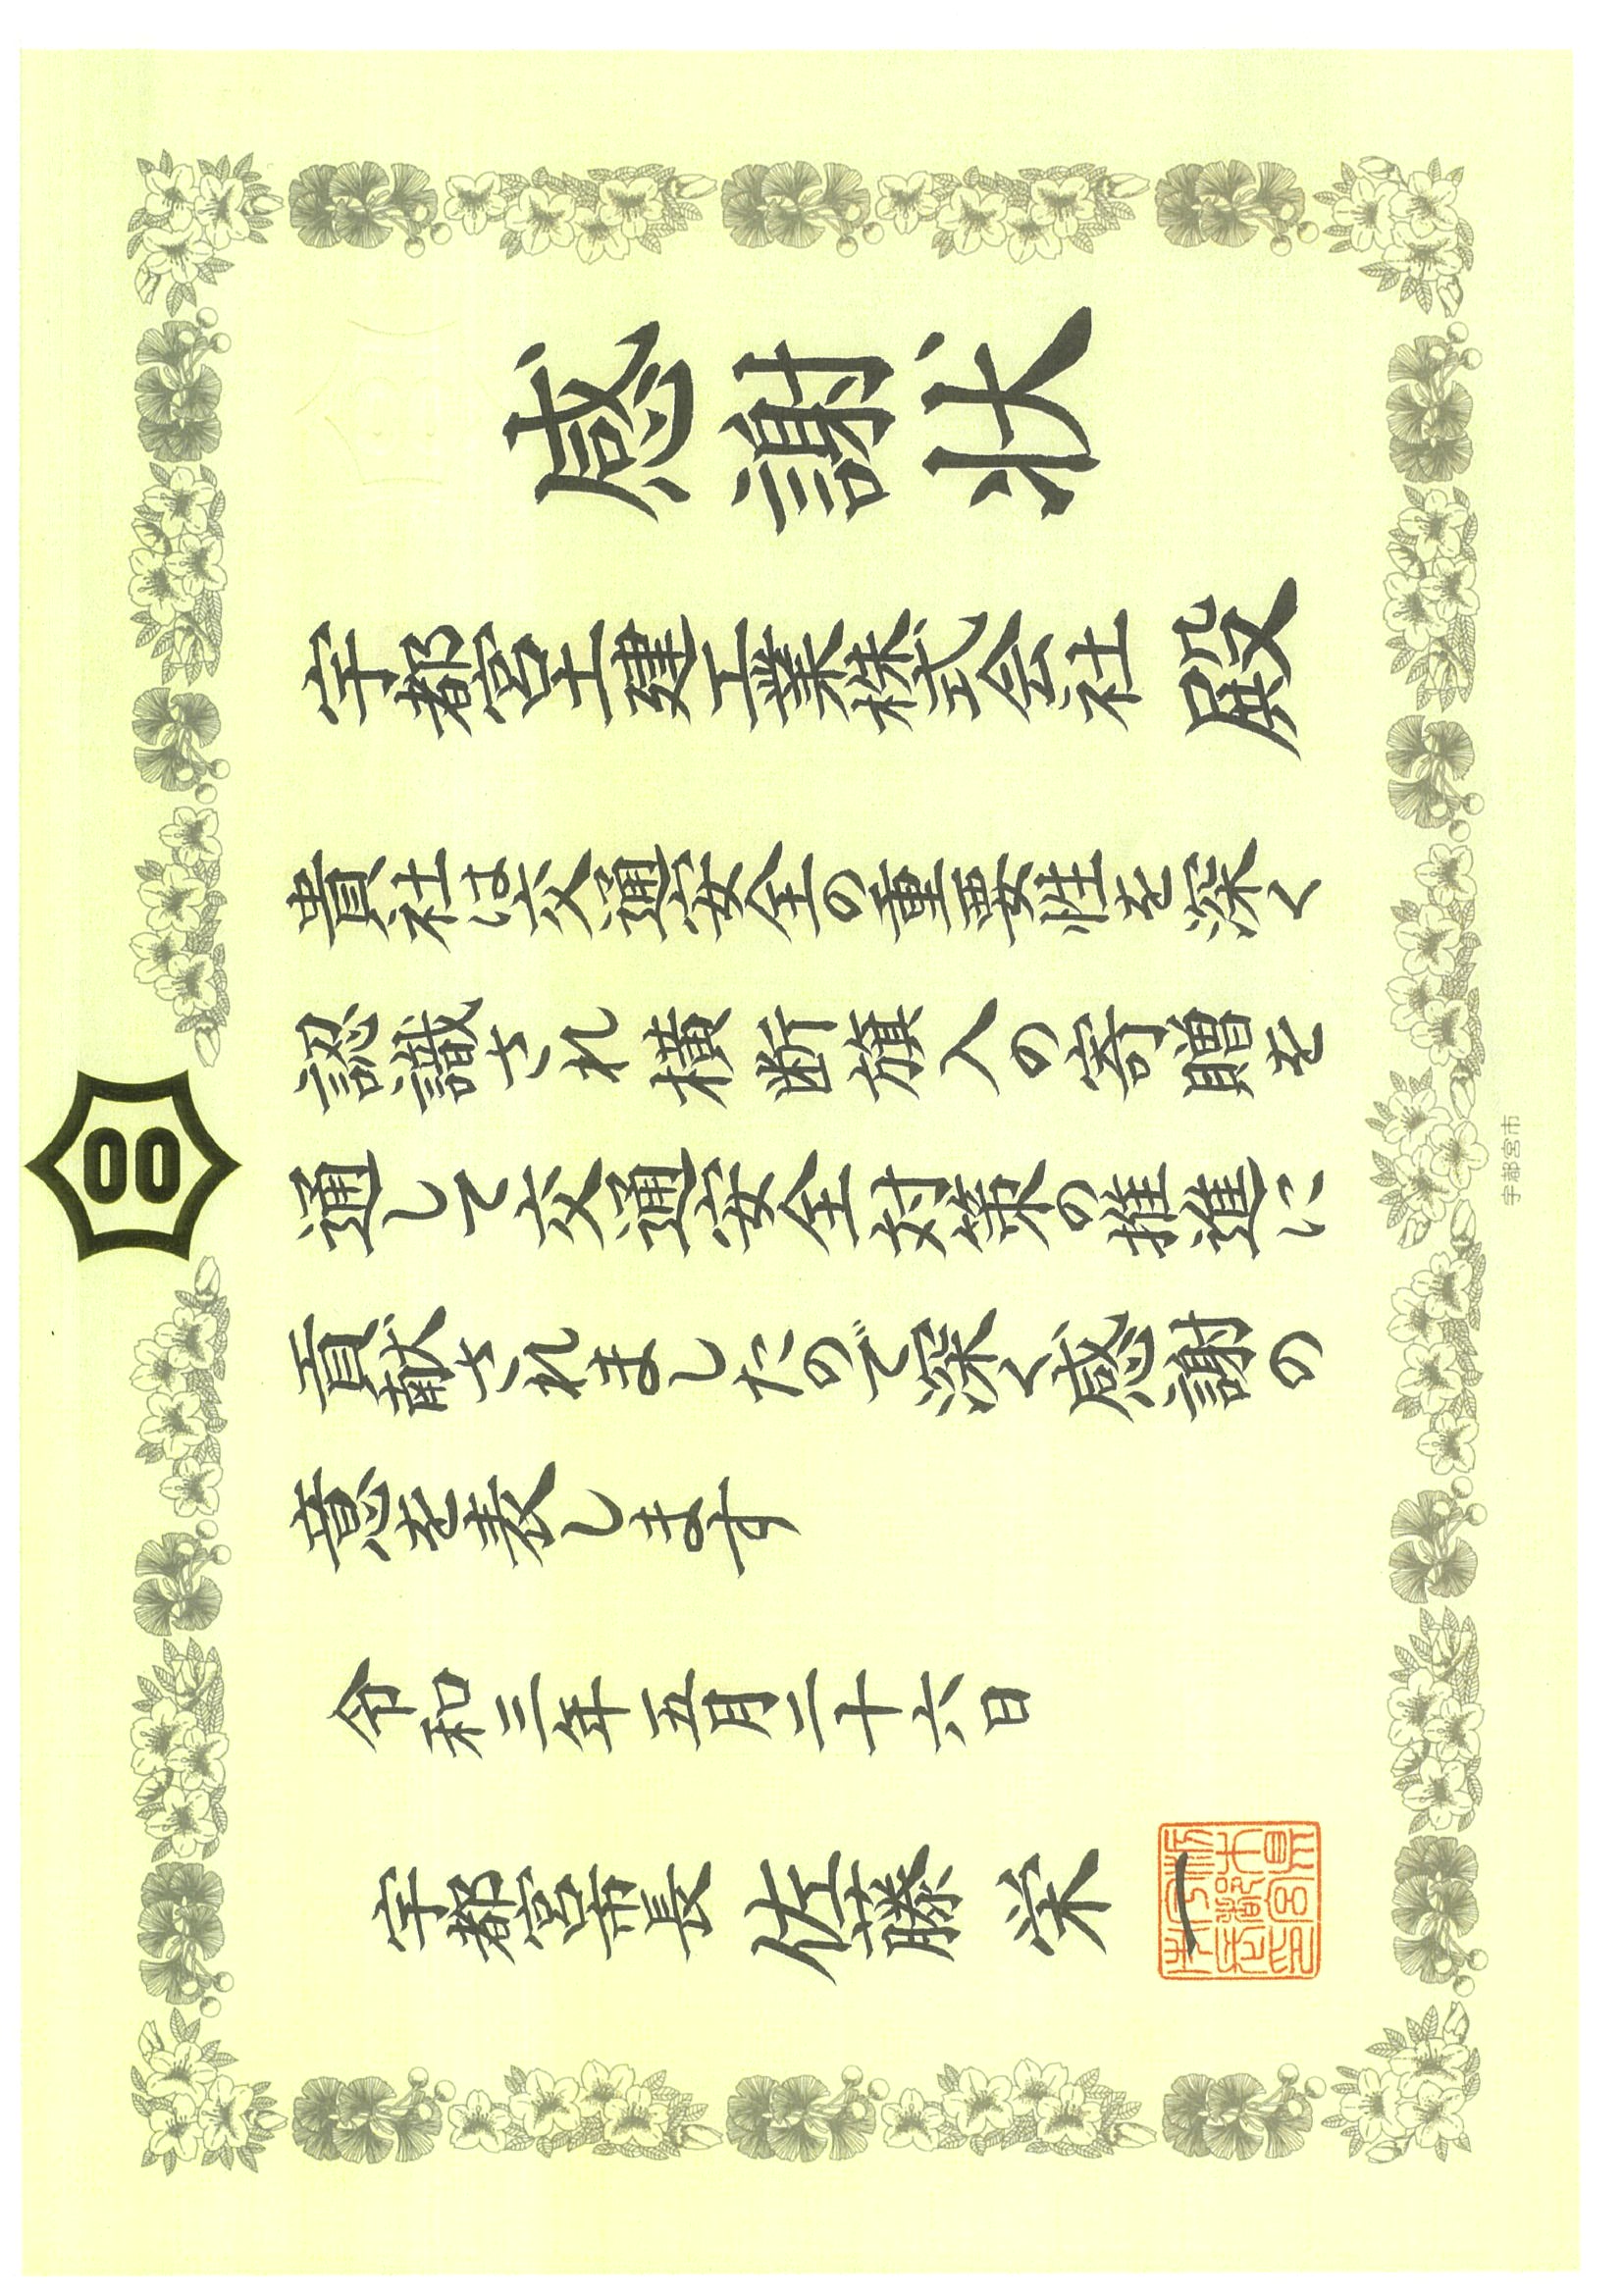 感謝状
宇都宮土建工業株式会社 殿
貴社は交通安全の重要性を深く
認識され横断旗入の寄贈を
通して交通安全対策の推進に
貢献されましたので深く感謝の
意を表します
令和三年五月二十六日
宇都宮市長 佐藤 栄一
宇都宮市